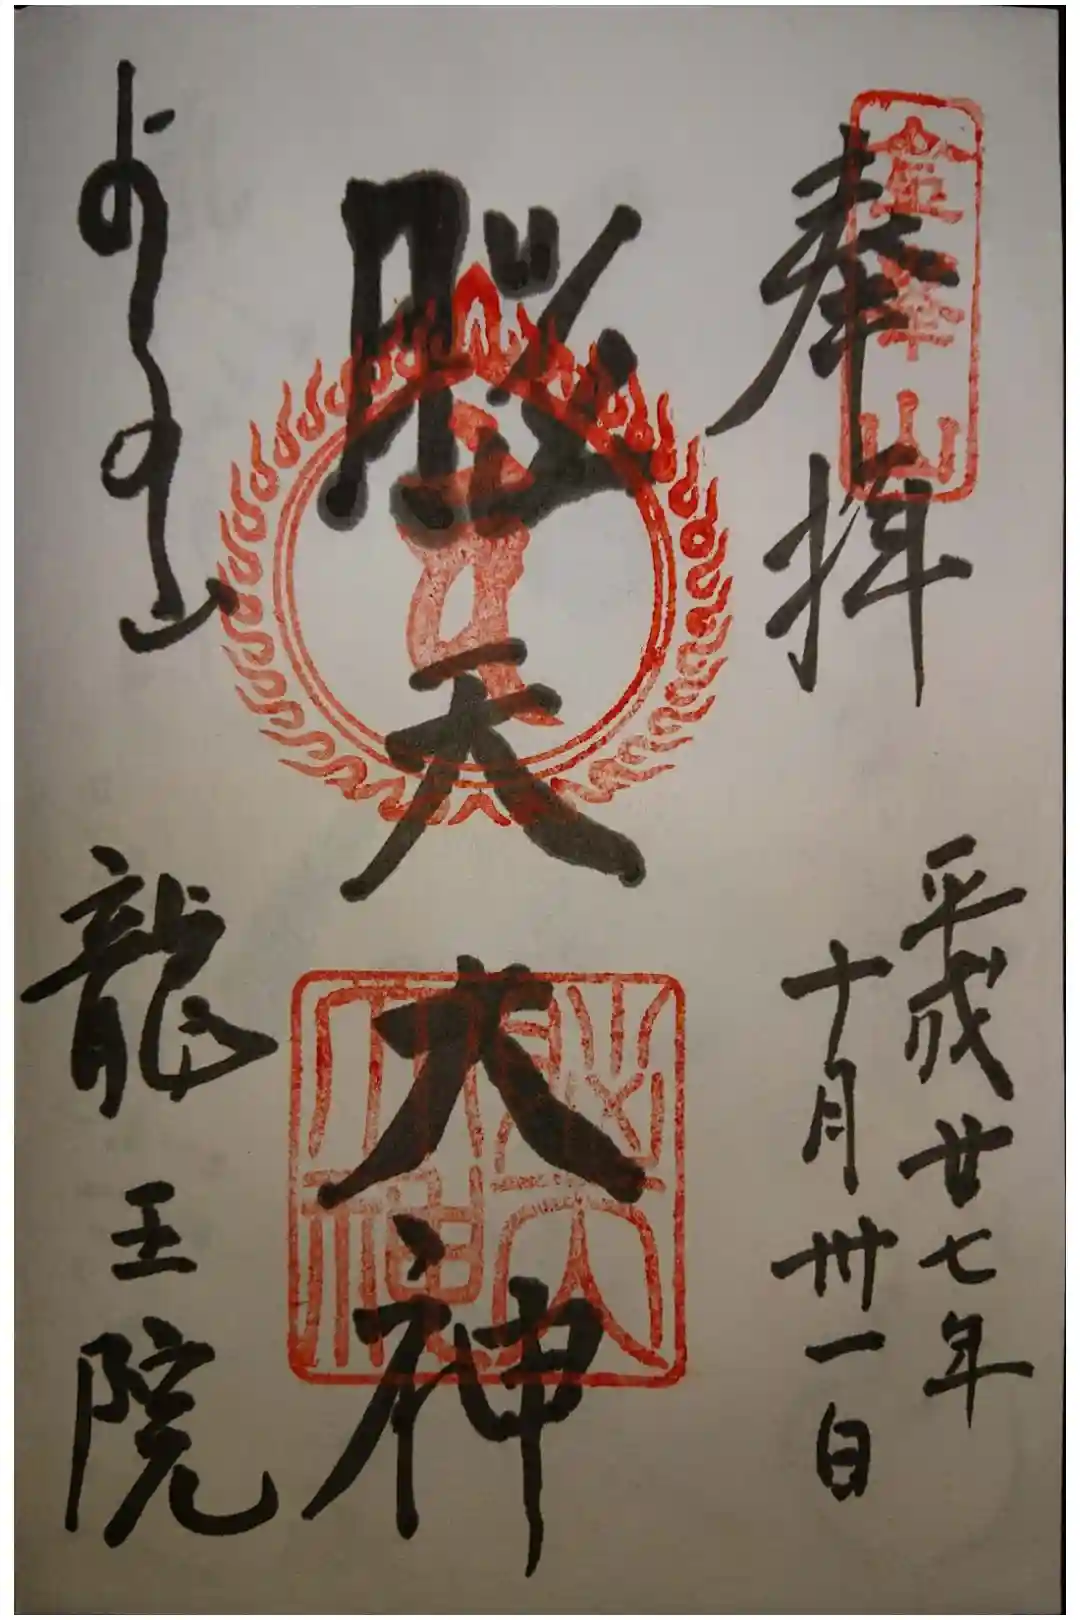 金峯山
奉拝
平成廿七年
十月卅一日
脳天大神
脳天
大神
よしの山
龍王院